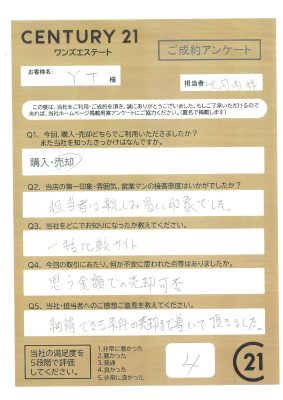 CENTURY 21
ワンズエステート
ご成約アンケート
お客様名:
Y.T 様
担当者:
この度は、当社をご利用・ご成約を頂き、誠にありがとうございました。もしご了承いただけるので
あれば、当社ホームページ掲載用案アンケートにご協力ください。(匿名で掲載します)
Q1. 今回、購入・売却どちらでご利用いただきましたか?
また当社を知ったきっかけはなんですか。
購入・売却
Q2. 当店の第一印象・雰囲気、営業マンの接客態度はいかがでしたか?
担当者は親しみ易い印象でした。
Q3. 当社をどこでお知りになったか教えてください。
一括比較サイト
Q4. 今回の取引にあたり、何か不安に思われた点等はありましたか。
思う金額での売却可否
Q5. 当社・担当者へのご感想ご意見を教えてください。
納得できる条件の売却まで導いて頂きました。
当社の満足度を
5段階で評価
してください。
1.非常に悪かった
2.悪かった
3.普通
4.良かった
5.非常に良かった
4
C21